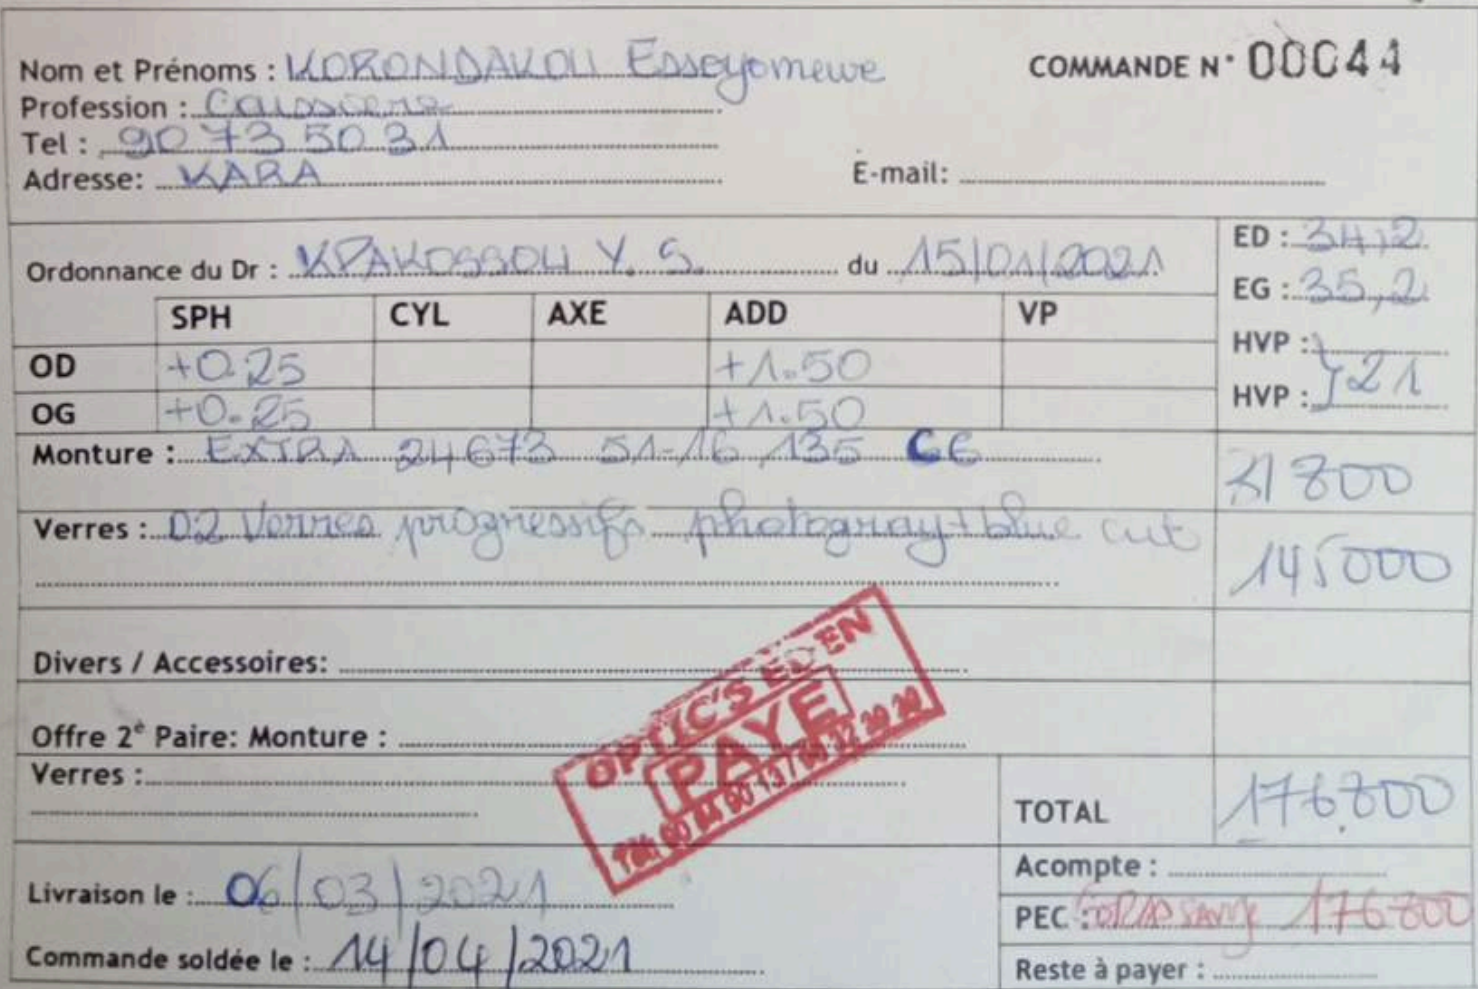 Nom et Prénoms : KORONDAKOU Essoyomewe
COMMANDE N° 00044
Profession : Caissière
Tel : 90 73 50 31
Adresse: KARA
E-mail:
Ordonnance du Dr : KPAKOSSOU Y. S. du 15/01/2021
ED : 34,2
EG : 35,2
HVP :
HVP : } 21
SPH CYL AXE ADD VP
OD +0.25 +1.50
OG +0.25 +1.50
Monture : EXTRA 24673 51-16 135 C6
31 800
Verres : 02 Verres progressifs photogray+blue cut
145000
Divers / Accessoires:
Offre 2è Paire: Monture :
Verres :
OPTIC'S EDEN
PAYE
TOTAL 176.800
Livraison le : 06/03/2021
Acompte :
PEC : 176800
Commande soldée le : 14/04/2021
Reste à payer :